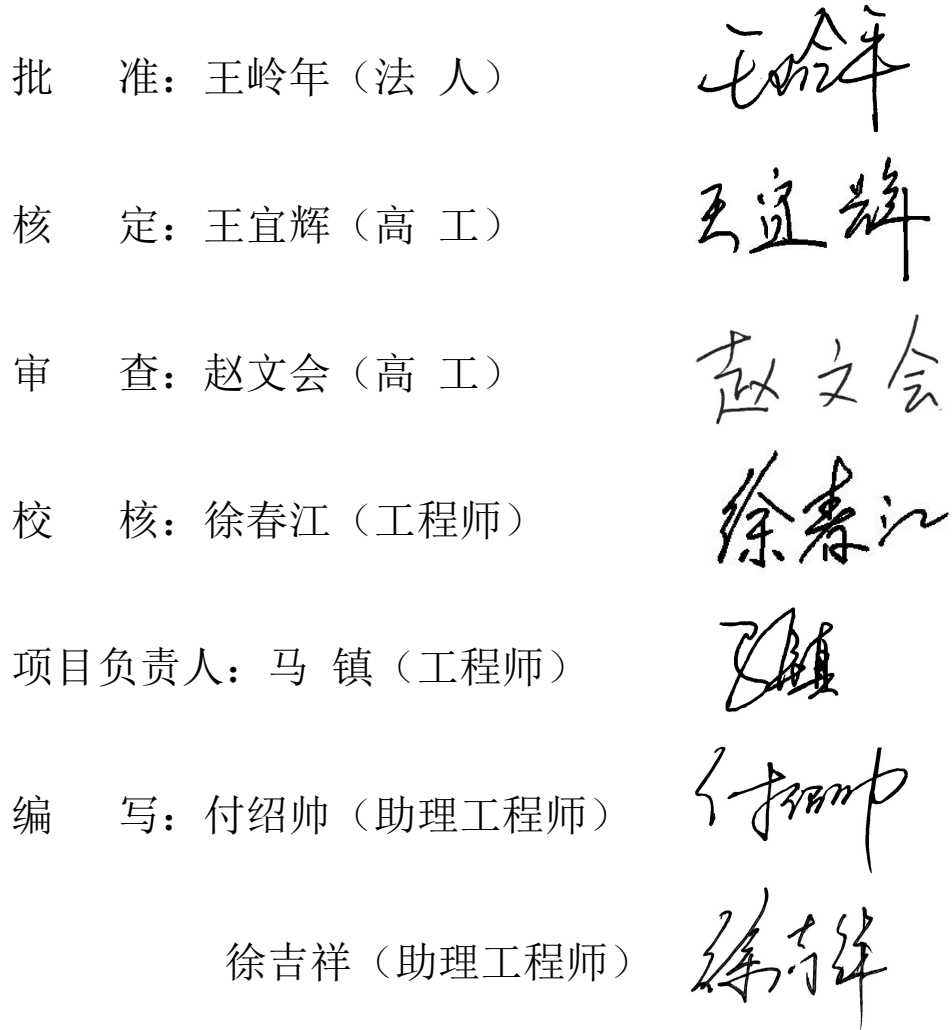 批 准：王岭年（法 人） 王岭年
核 定：王宜辉（高 工） 王宜辉
审 查：赵文会（高 工） 赵文会
校 核：徐春江（工程师） 徐春江
项目负责人：马 镇（工程师） 马镇
编 写：付绍帅（助理工程师） 付绍帅
徐吉祥（助理工程师） 徐吉祥